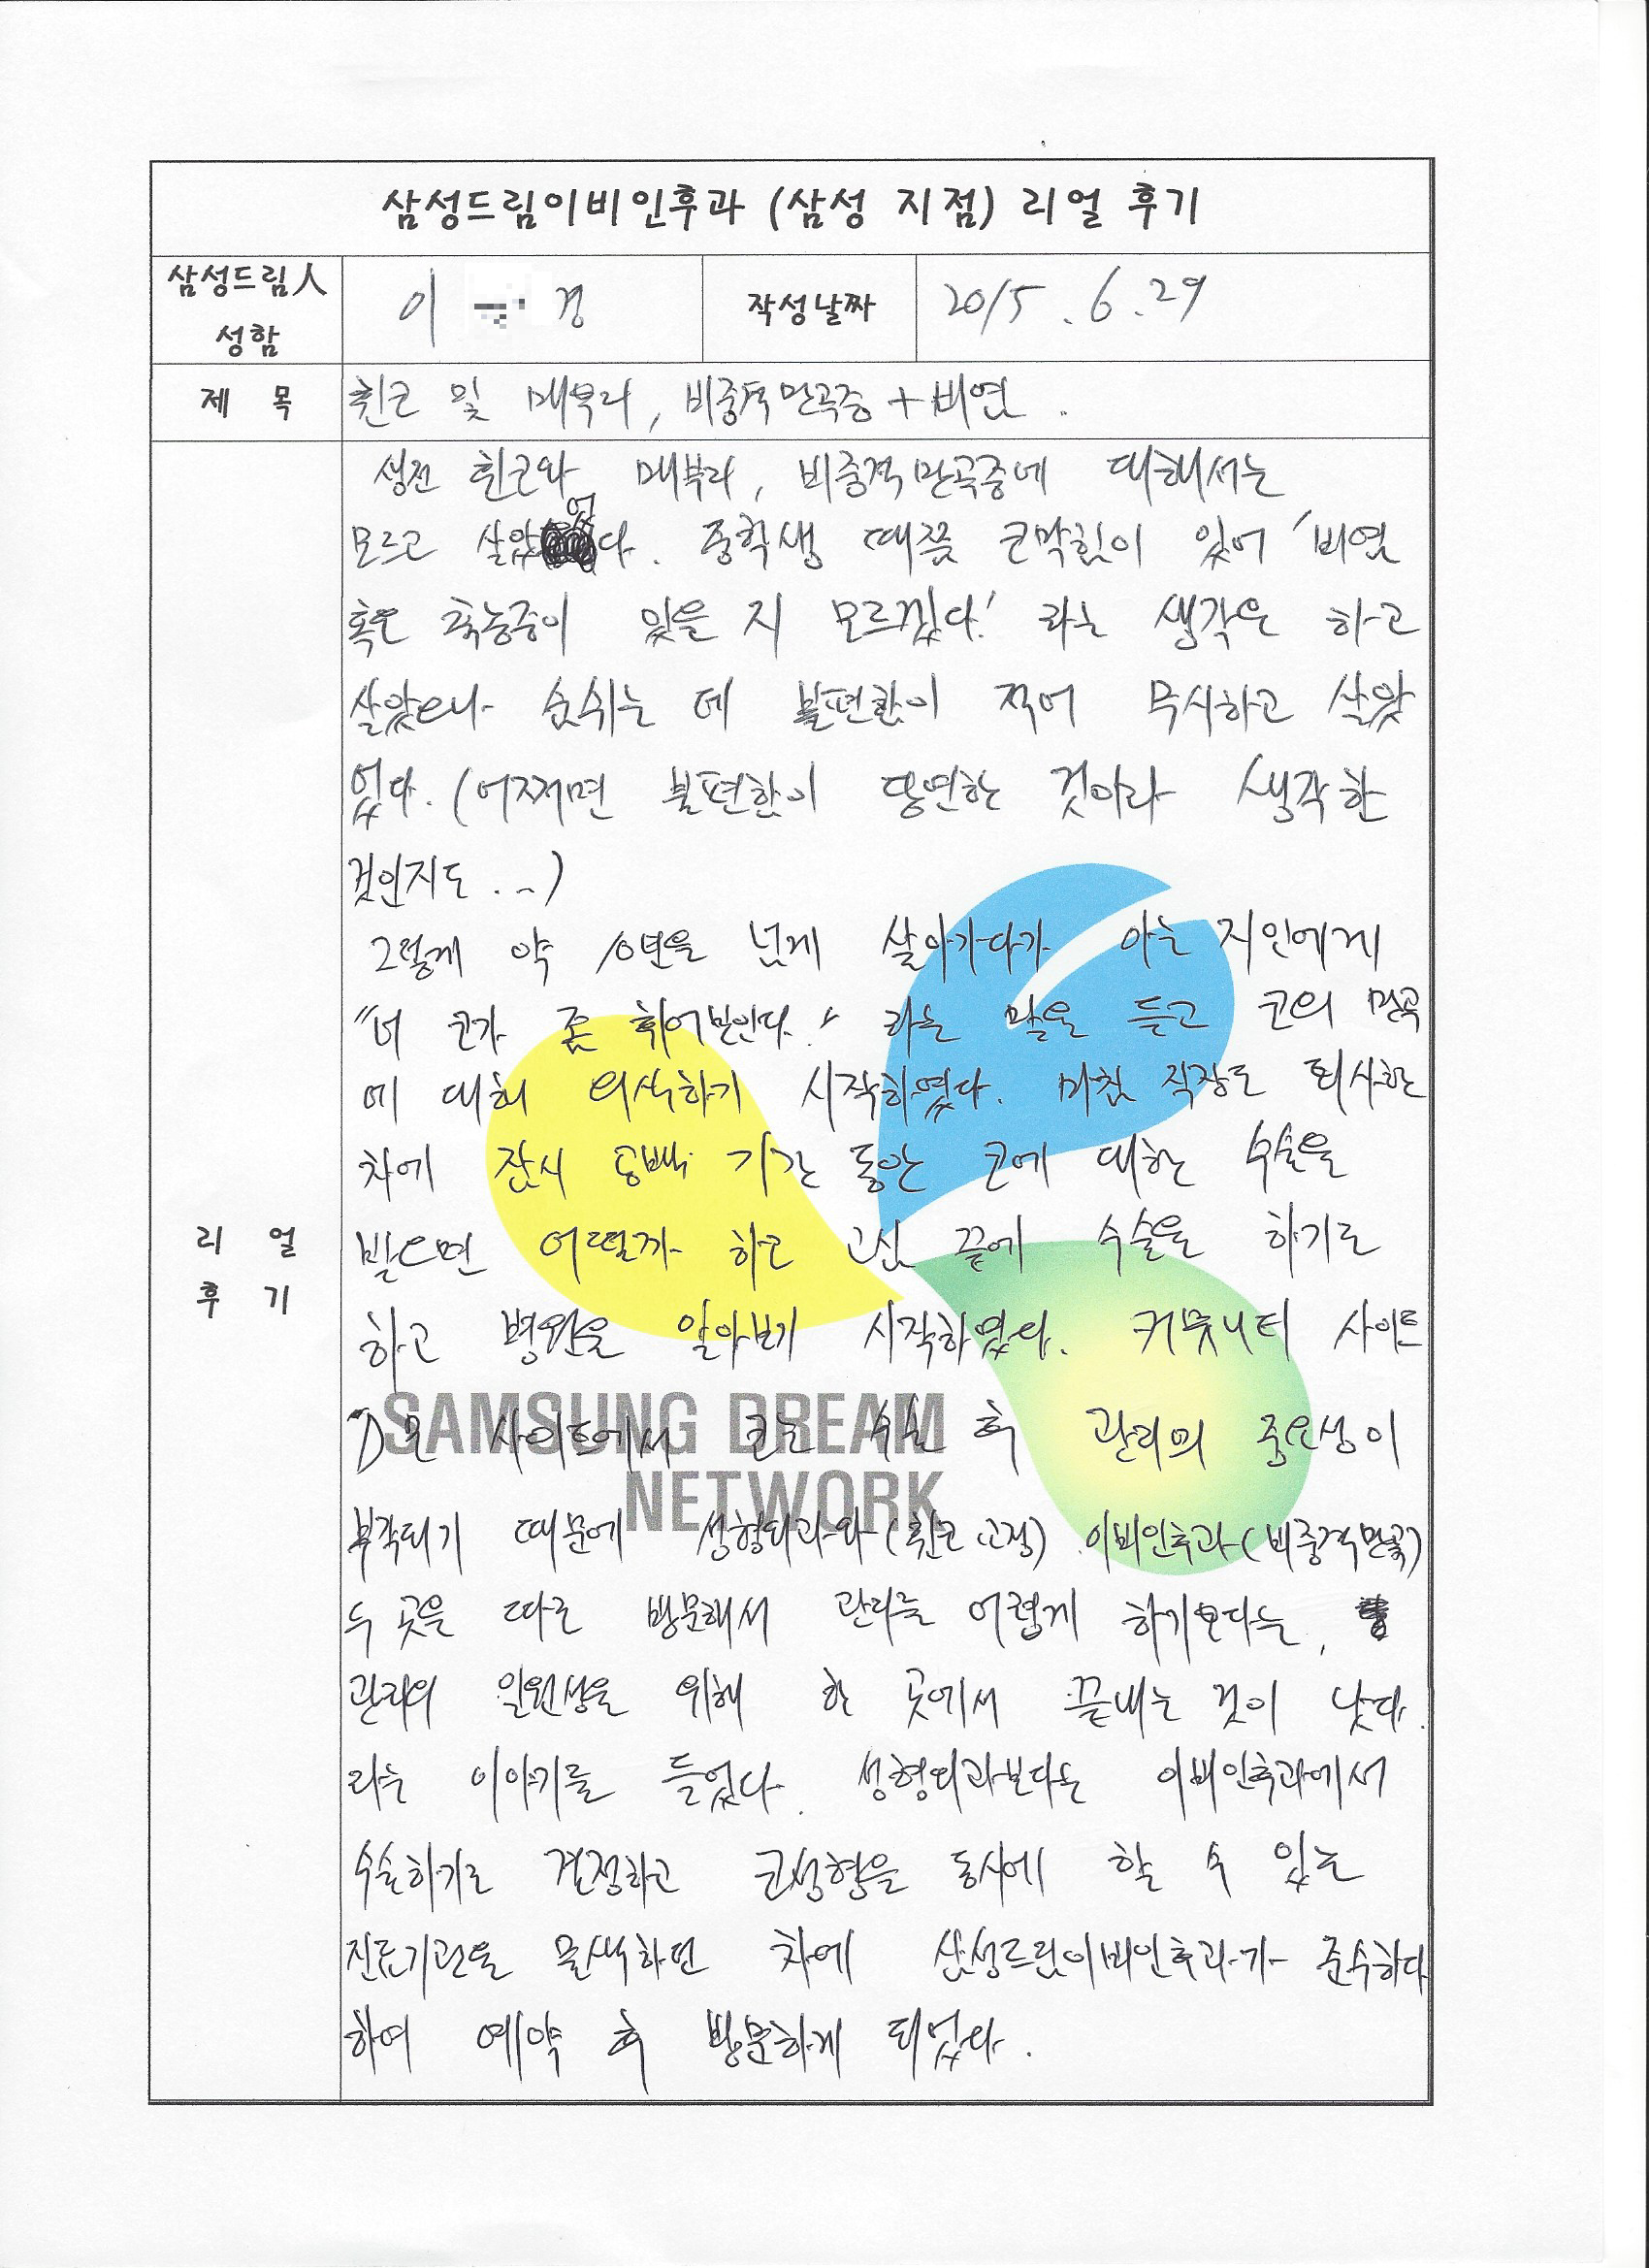 삼성드림이비인후과 (삼성 지점) 리얼 후기
삼성드림人
성함
이 경
작성날짜
2015. 6. 29
제 목
휜코 및 매부리, 비중격만곡증 + 비염.
생전 휜코와 매부리, 비중격만곡증에 대해서는
모르고 살았었다. 중학생 때쯤 코막힘이 있어 '비염
혹은 축농증이 있을 지 모르겠다.' 라는 생각은 하고
살았으나 숨쉬는 데 불편함이 적어 무시하고 살았
었다. (어쩌면 불편함이 당연하는 것이라 생각한
것인지도...)
그렇게 약 10년을 넘게 살아가다가 아는 지인에게
"너 코가 좀 휘어보인다." 라는 말을 듣고 코의 만곡
에 대해 의식하기 시작하였다. 마침 직장도 퇴사한
차에 잠시 공백 기간 동안 코에 대한 수술을
받으면 어떨까 하고 고심 끝에 수술을 하기로
하고 병원을 알아보기 시작하였다. 커뮤니티 사이트
D모 사이트에서 코는 수술 후 관리의 중요성이
부각되기 때문에 성형외과와 (휜코 교정) 이비인후과 (비중격만곡)
두 곳을 따로 방문해서 관리를 어렵게 하기보다는,
관리의 일원성을 위해 한 곳에서 끝내는 것이 낫다.
라는 이야기를 들었다. 성형외과보다는 이비인후과에서
수술하기로 결정하고 코성형을 동시에 할 수 있는
진료기관을 물색하던 차에 삼성드림이비인후과가 준수하다
하여 예약 후 방문하게 되었다.
리 얼
후 기
SAMSUNG DREAM
NETWORK